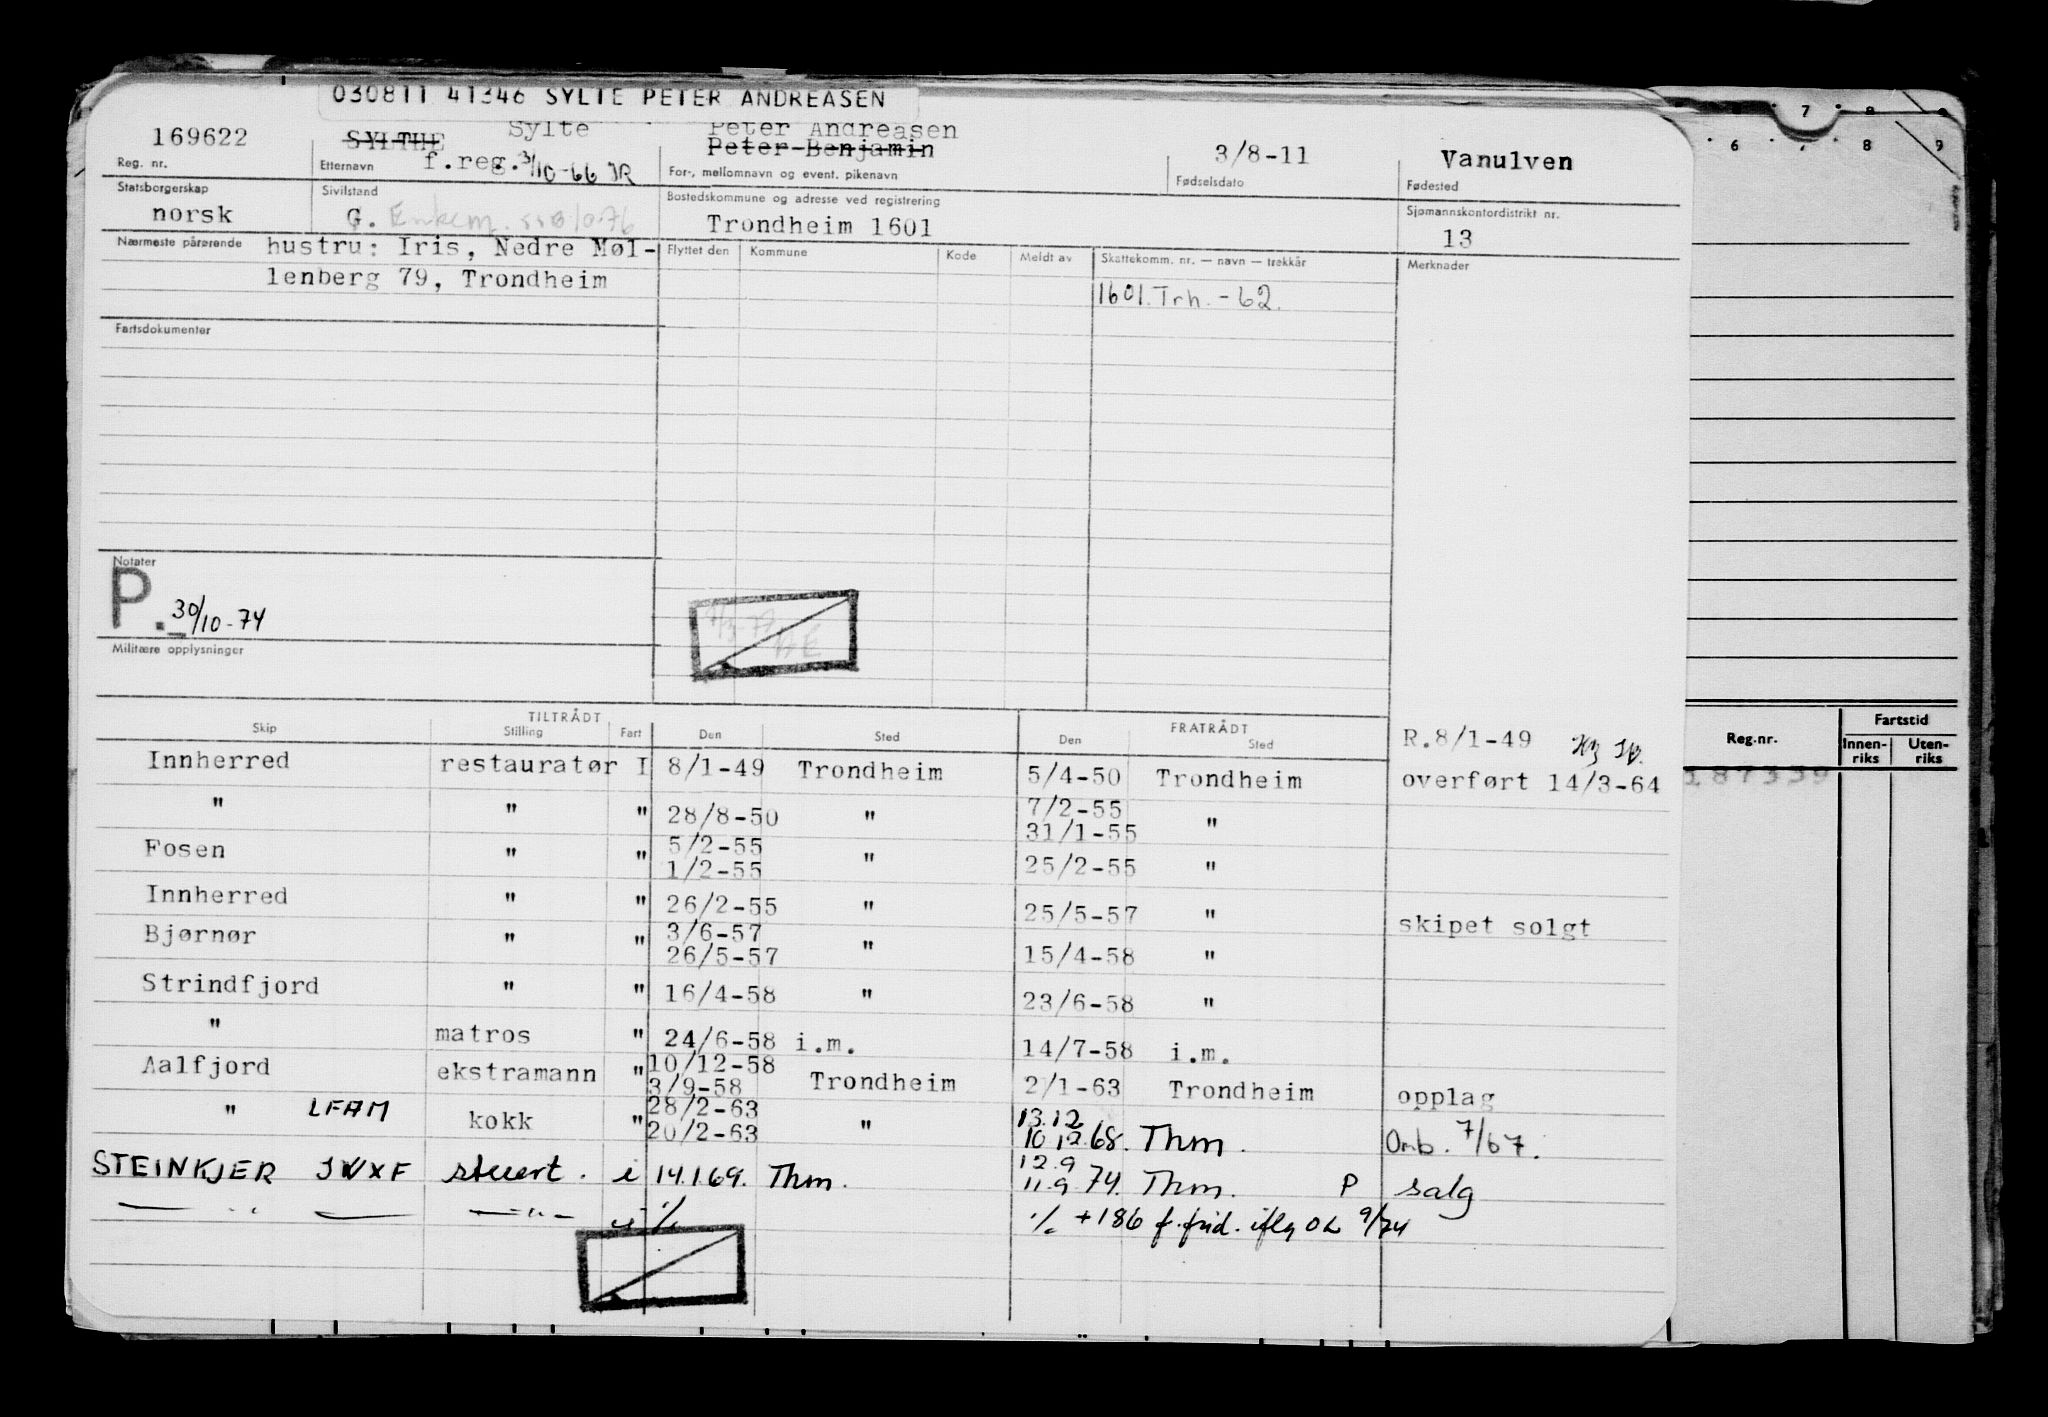 030811 41346 SYLTE PETER ANDREASEN
169622 SYLTHE Sylte Peter Andreasen 3/8-11 Vanulven
f.reg. 3/10-66 JR Peter Benjamin
Reg. nr. Etternavn For-, mellomnavn og event. pikenavn Fødselsdato Fødested
Statsborgerskap Sivilstand Bostedskommune og adresse ved registrering Sjømannskontordistrikt nr.
norsk G. Enkem. Trondheim 1601 13
Nærmeste pårørende hustru: Iris, Nedre Møl-
lenberg 79, Trondheim
Flyttet den Kommune Kode Meldt av Skattekomm. nr. — navn — trekkår Merknader
1601. Trh. - 62.
Fartsdokumenter
Notater
P. 30/10-74
Militære opplysninger
TILTRÅDT FRATRÅDT
Skip Stilling Fart Den Sted Den Sted
R.8/1-49
Innherred restauratør I 8/1-49 Trondheim 5/4-50 Trondheim overført 14/3-64
" " " 28/8-50 " 7/2-55 31/1-55 "
Fosen " " 5/2-55 1/2-55 " 25/2-55 "
Innherred " " 26/2-55 " 25/5-57 " skipet solgt
Bjørnør " " 3/6-57 26/5-57 " 15/4-58 "
Strindfjord " " 16/4-58 " 23/6-58 "
" matros " 24/6-58 i.m. 14/7-58 i.m.
Aalfjord ekstramann " 10/12-58 3/9-58 Trondheim 2/1-63 Trondheim opplag
" LFAM kokk " 28/2-63 20/2-63 " 13.12 10.12.68. Thm. Omb. 7/67.
STEINKJER JWXF stuert. i 14.1.69. Thm. 12.9 11.9.74. Thm. P salg
— " — — — " — % % +186 f. frid. iflg OL 9/74
6 7 8 9
7 8 9
Reg.nr. Fartstid
Innen-riks Uten-riks
187339